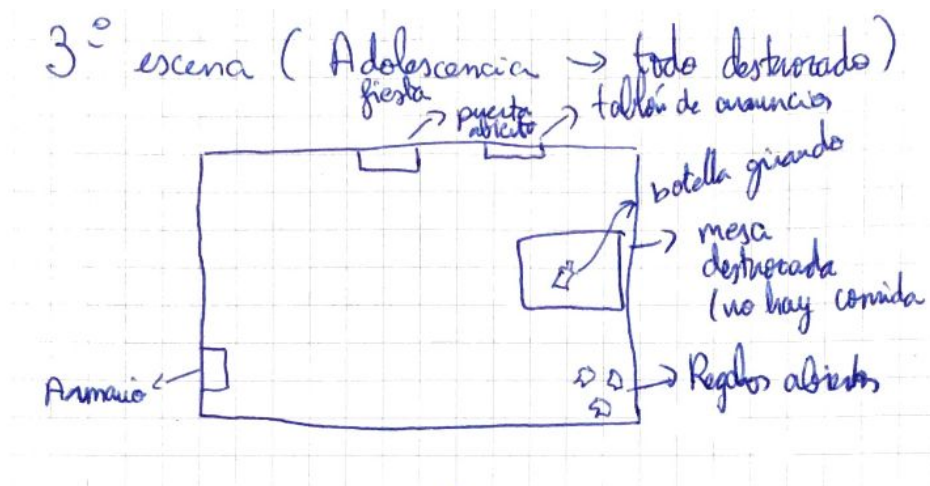 3º escena ( Adolescencia → todo destrozado )
fiesta
puerta
abierta
tablón de anuncios
botella girando
mesa
destrozada
(no hay comida
Armario
Regalos abiertos